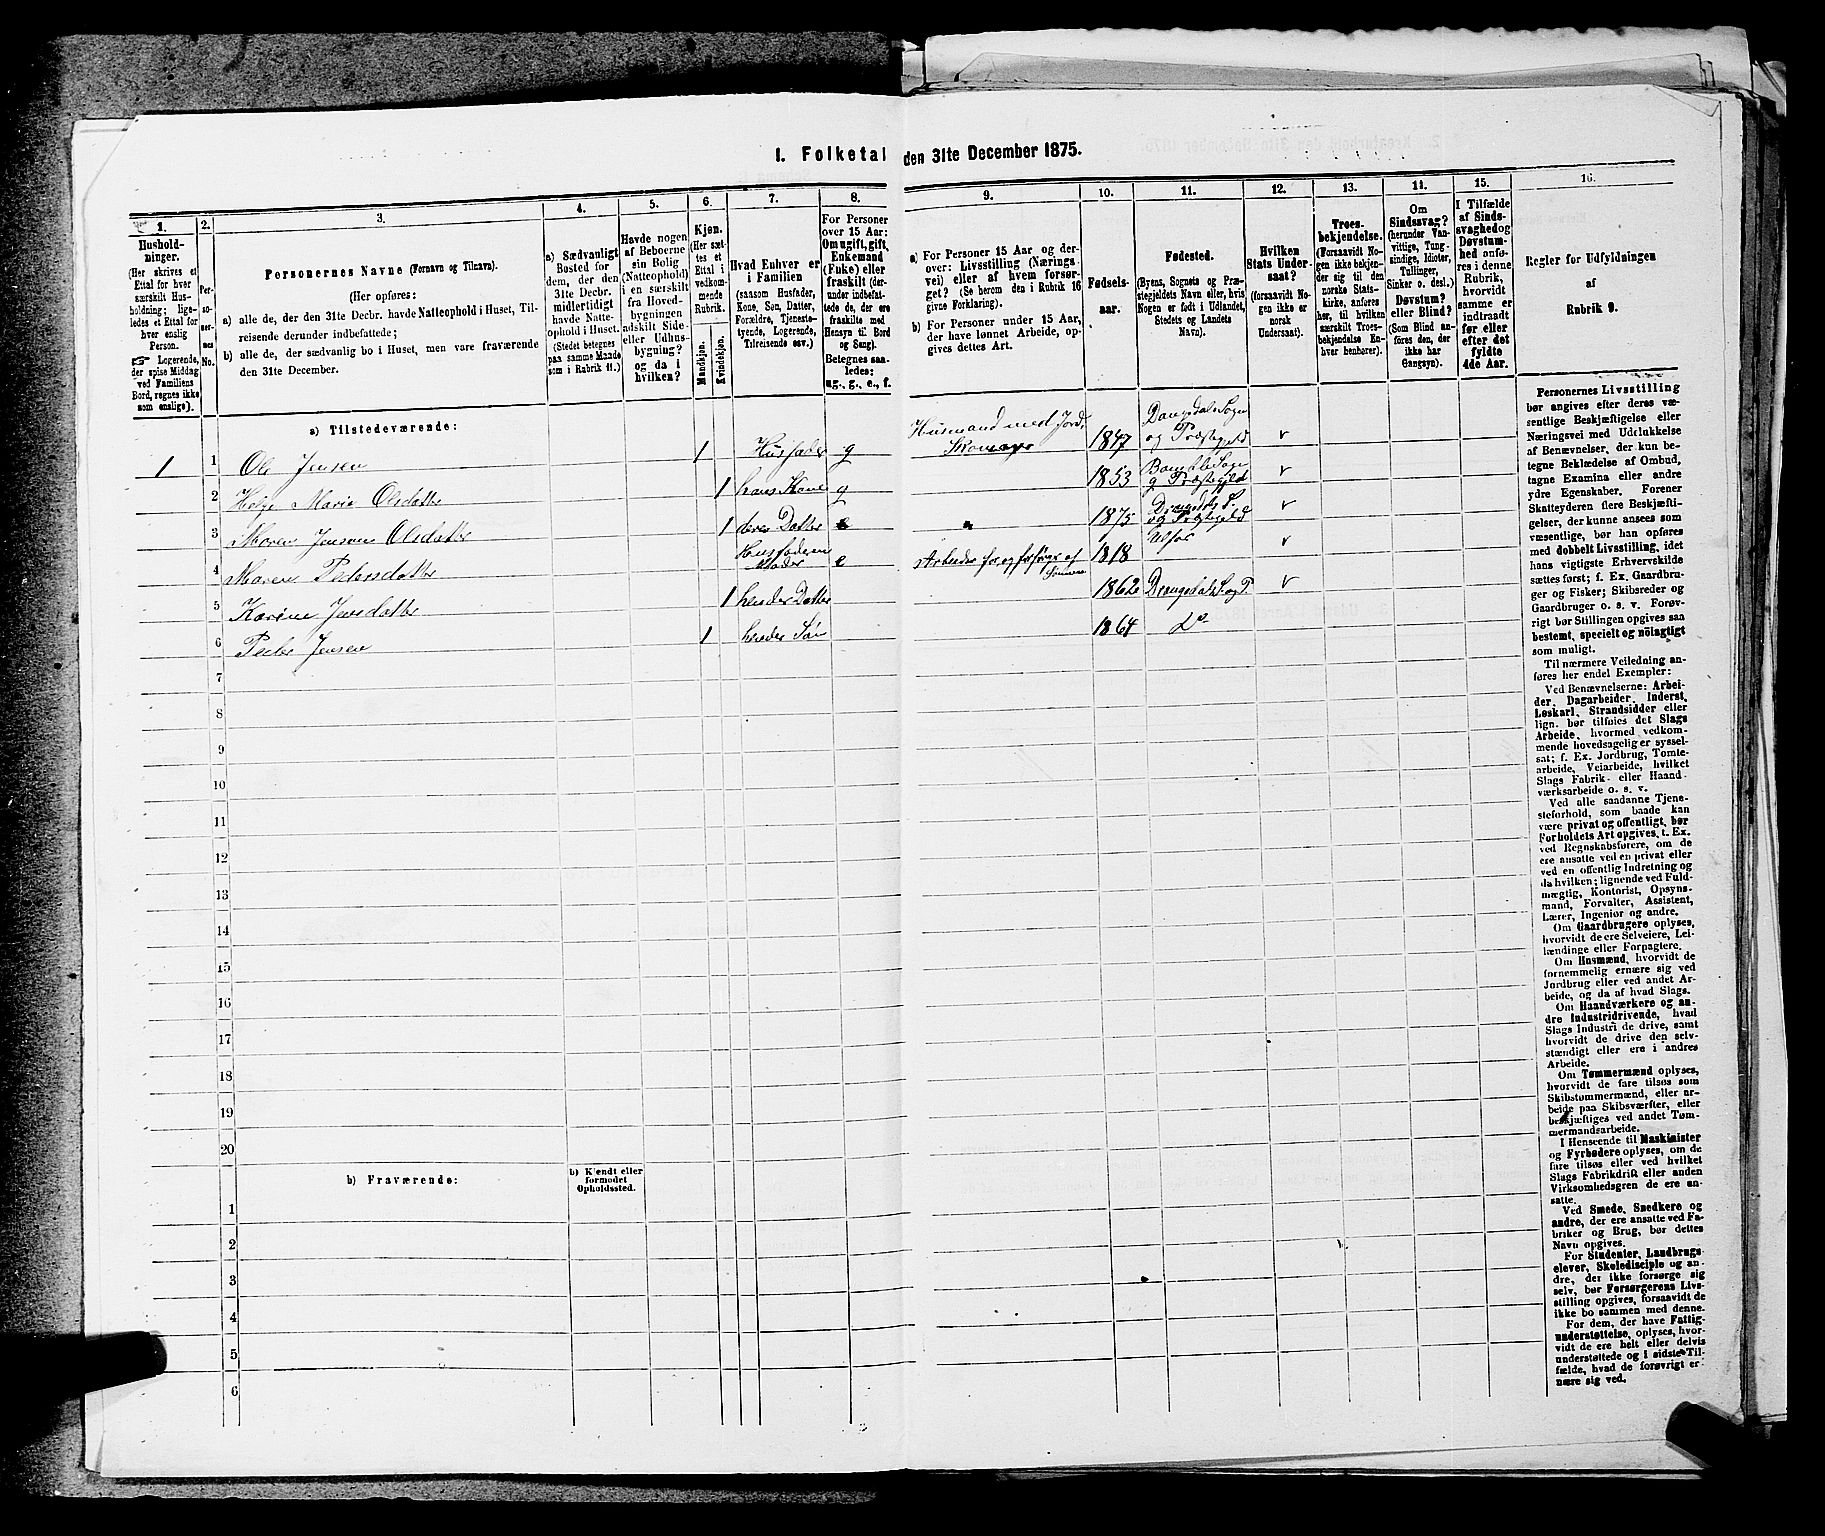 1. Folketal den 31te December 1875.
1.
Hushold-
ninger.
(Her skrives et
Ettal for hver
særskilt Hus-
holdning; lige-
ledes et Ettal for
hver enslig
Person.
☞ Logerende,
der spise Middag
ved Familiens
Bord, regnes ikke
som enslige).
2.
Per-
so-
ner-
nes
No.
3.
Personernes Navne (Fornavn og Tilnavn).
(Her opføres:
a) alle de, der den 31te Decbr. havde Natteophold i Huset, Til-
reisende derunder indbefattede;
b) alle de, der sædvanlig bo i Huset, men vare fraværende
den 31te December.
4.
a) Sædvanligt
Bosted for
dem, der den
31te Decbr.
midlertidigt
havde Natte-
ophold i Huset.
(Stedet betegnes
paa samme Maade
som i Rubrik 11.)
5.
Havde nogen
af Beboerne
sin Bolig
(Natteophold)
i en særskilt
fra Hoved-
bygningen
adskilt Side-
eller Udhus-
bygning?
og da i
hvilken?
6.
Kjøn.
(Her sæt-
tes et
Ettal i
vedkom-
mende
Rubrik.
Mandkjøn.
Kvindekjøn.
7.
Hvad Enhver er
i Familien
(saasom Husfader,
Kone, Søn, Datter,
Forældre, Tjeneste-
tyende, Logerende,
Tilreisende osv.)
8.
For Personer
over 15 Aar:
Om ugift, gift,
Enkemand
(Enke) eller
fraskilt (der-
under indbefat-
tede de, der ere
fraskilte med
Hensyn til Bord
og Seng).
Betegnes saa-
ledes:
ug., g., e., f.
9.
a) For Personer 15 Aar og der-
over: Livsstilling (Nærings
vei) eller af hvem forsør-
get? (Se herom den i Rubrik 16
givne Forklaring).
b) For Personer under 15 Aar,
der have lønnet Arbeide, op-
gives dettes Art.
10.
Fødsels-
aar.
11.
Fødested.
(Byens, Sognets og Præ-
stegjeldets Navn eller, hvis
Nogen er født i Udlandet,
Stedets og Landets
Navn).
12.
Hvilken
Stats Under-
saat?
(forsaavidt No-
gen ikke er
norsk
Undersaat).
13.
Troes-
bekjendelse.
(Forsaavidt No-
gen ikke bekjen-
der sig til den
norske Stats-
kirke, anføres
her, til hvilken
særskilt Troes-
bekjendelse En-
hver henhører).
11.
Om
Sindssvag?
(herunder Van-
vittige, Tung-
sindige, Idioter,
Tullinger,
Sinker o. desl.)
Døvstum?
eller Blind?
(Som Blind an-
føres den, der
ikke har
Gangsyn).
15.
I Tilfælde
af Sinds-
svaghed og
Døvstum-
hed anfø-
res i denne
Rubrik,
hvorvidt
samme er
indtraadt
før eller
efter det
fyldte
4de Aar.
16.
Regler for Udfyldningen
af
Rubrik 9.
a) Tilstedeværende:
1 1 Ole Jensen 1 Husfader g Husmand med Jord, Skomager 1847 Drangedals Sogn og Præstegjeld v
2 Helje Marie Olsdatter 1 hans Kone g 1853 Bamble Sogn og Præstegjeld v
3 Maren Jensine Olsdatter 1 deres Datter 1875 Drangedals S. og Præstegjeld v
4 Maren Pedersdatter Husfaderens Moder e Arbeider for, og forsørges af Sønnen 1818 v
5 Karine Jensdatter 1 hendes Datter 1862 Drangedals S. og P. v
6 Peder Jensen 1 hendes Søn 1864 Do
7
8
9
10
11
12
13
14
15
16
17
18
19
20
b) Fraværende:
b) Kjendt eller
formodet
Opholdssted.
1
2
3
4
5
6
Personernes Livsstilling
bør angives efter deres væ-
sentlige Beskjæftigelse eller
Næringsvei med Udelukkelse
af Benævnelser, der kun be-
tegne Beklædelse af Ombud,
tagne Examina eller andre
ydre Egenskaber. Forener
Skatteyderen flere Beskjæfti-
gelser, der kunne ansees som
væsentlige, bør han opføres
med dobbelt Livsstilling, idet
hans vigtigste Erhvervskilde
sættes først; f. Ex. Gaardbru-
ger og Fisker; Skibsreder og
Gaardbruger o. s. v. Forøv-
rigt bør Stillingen opgives saa
bestemt, specielt og nöiagtigt
som muligt.
Til nærmere Veiledning an-
føres her endel Exempler:
Ved Benævnelserne: Arbei-
der, Dagarbeider, Inderst,
Løskarl, Strandsidder eller
lign. bør tilføies det Slags
Arbeide, hvormed vedkom-
mende hovedsagelig er syssel-
sat; f. Ex. Jordbrug, Tomte-
arbeide, Veiarbeide, hvilket
Slags Fabrik- eller Haand-
værksarbeide o. s. v.
Ved alle saadanne Tjene-
steforhold, som baade kan
være privat og offentligt, bør
Forholdets Art opgives, t. Ex.
ved Regnskabsførere, om de
ere ansatte ved en privat eller
ved en offentlig Indretning og
da hvilken; lignende ved Fuld-
mægtig, Kontorist, Opsyns-
mand, Forvalter, Assistent,
Lærer, Ingeniør og andre.
Om Gaardbrugere oplyses,
hvorvidt de ere Selveiere, Lei-
lændinge eller Forpagtere.
Om Husmænd, hvorvidt de
fornemmelig ernære sig ved
Jordbrug eller ved andet Ar-
beide, og da af hvad Slags.
Om Haandværkere og an-
dre Industridrivende, hvad
Slags Industri de drive, samt
hvorvidt de drive den selv-
stændigt eller ere i andres
Arbeide.
Om Tømmermænd oplyses,
hvorvidt de fare tilsøs som
Skibstømmermænd, eller ar-
beide paa Skibsværfter, eller
beskjæftiges ved andet Tøm-
mermandsarbeide.
I Henseende til Maskinister
og Fyrbødere oplyses, om de
fare tilsøs eller ved hvilket
Slags Fabrikdrift eller anden
Virksomhedsgren de ere an-
satte.
Ved Smede, Snedkere og
andre, der ere ansatte ved Fa-
briker og Brug, bør dettes
Navn opgives.
For Studenter, Landbrugs-
elever, Skoledisciple og an-
dre, der ikke forsørge sig
selv, bør Forsørgerens Livs-
stilling opgives, forsaavidt de
ikke bo sammen med denne.
For dem, der have Fattig-
understøttelse, oplyses, hvor-
vidt de ere helt eller delvis
understøttede og i sidste Til-
fælde, hvad de forøvrigt er-
nære sig ved.